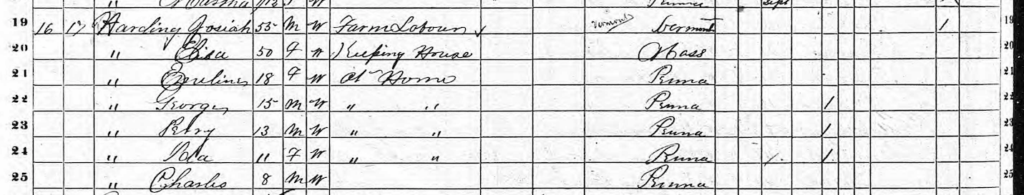 19 16 17 Harding Josiah 55 M W Farm Labourer Vermont Vermont 1 19
20 " Eliza 50 F W Keeping House Mass 20
21 " Eveline 18 F W At Home Penna 21
22 " George 15 M W " " Penna 1 22
23 " Perry 13 M W " " Penna 1 23
24 " Ida 11 F W " " Penna 1 1 24
25 " Charles 8 M W Penna 25